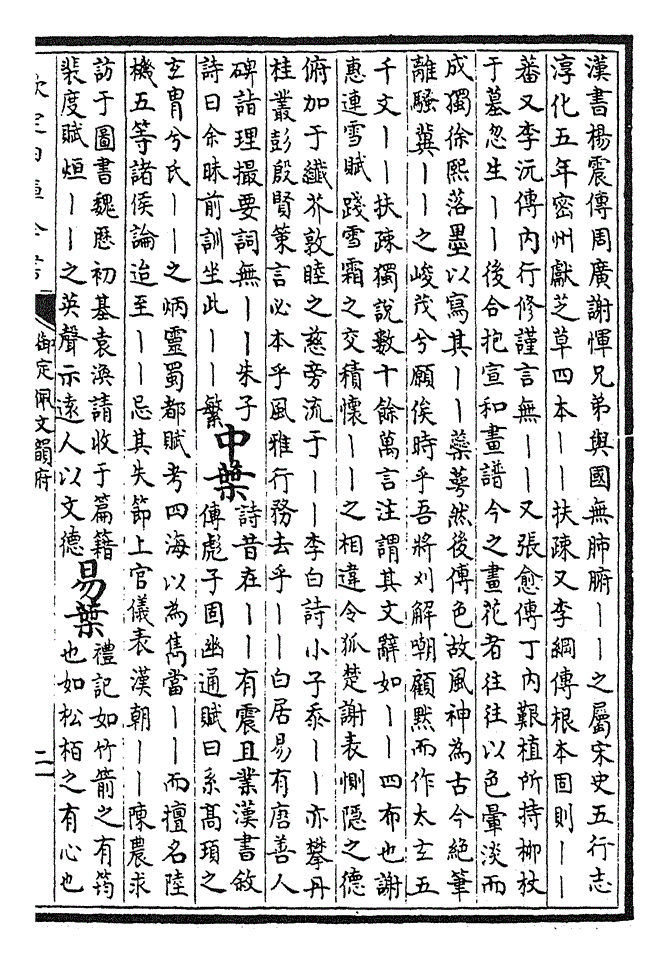 漢書楊震傳周廣謝惲兄弟與國無肺腑丨丨之屬宋史五行志
淳化五年密州獻芝草四本丨丨扶疎又李綱傳根本固則丨丨
蕃又李沆傳內行修謹言無丨丨又張愈傳丁內艱植所持柳杖
于墓忽生丨丨後合抱宣和畫譜今之畫花者往往以色暈淡而
成獨徐熙落墨以寫其丨丨蘂萼然後傅色故風神為古今絕筆
離騷冀丨丨之峻茂兮願俟時乎吾將刈解嘲顧黙而作太玄五
千文丨丨扶疎獨說數十餘萬言注謂其文辭如丨丨四布也謝
惠連雪賦踐雪霜之交積懷丨丨之相違令狐楚謝表惻隱之德
俯加于纎芥敦睦之慈旁流于丨丨李白詩小子忝丨丨亦攀丹
桂叢彭殷賢策言必本乎風雅行務去乎丨丨白居易有唐善人
碑詣理撮要詞無丨丨朱子
詩曰余昧前訓坐此丨丨繁
中葉
詩昔在丨丨有震且業漢書敘
傳彪子固幽通賦曰系高頊之
玄胄兮氏丨丨之炳靈蜀都賦考四海以為雋當丨丨而擅名陸
機五等諸侯論迨至丨丨忌其失節上官儀表漢朝丨丨陳農求
訪于圖書魏歷初基袁渙請收于篇籍
裴度賦烜丨丨之英聲示遠人以文德
易葉
禮記如竹箭之有筠
也如松栢之有心也
欽定四庫全書
御定佩文韻府
二